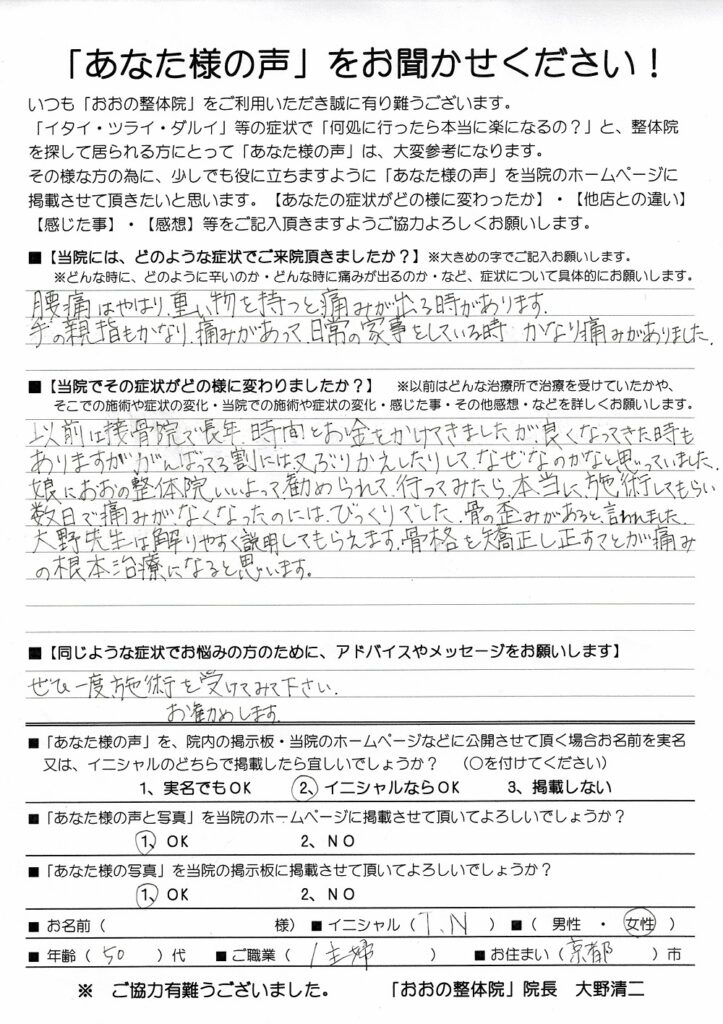 「あなた様の声」をお聞かせください！
いつも「おおの整体院」をご利用いただき誠に有り難うございます。
「イタイ・ツライ・ダルイ」等の症状で「何処に行ったら本当に楽になるの？」と、整体院
を探して居られる方にとって「あなた様の声」は、大変参考になります。
その様な方の為に、少しでも役に立ちますように「あなた様の声」を当院のホームページに
掲載させて頂きたいと思います。【あなたの症状がどの様に変わったか】・【他店との違い】
【感じた事】・【感想】等をご記入頂きますようご協力よろしくお願いします。
■【当院には、どのような症状でご来院頂きましたか？】※大きめの字でご記入お願いします。
※どんな時に、どのように辛いのか・どんな時に痛みが出るのか・など、症状について具体的にお願いします。
腰痛はやはり、重い物を持つと痛みが出る時があります。
手の親指もかなり、痛みがあって、日常の家事をしている時 かなり痛みがありました。
■【当院でその症状がどの様に変わりましたか？】 ※以前はどんな治療所で治療を受けていたかや、
そこでの施術や症状の変化・当院での施術や症状の変化・感じた事・その他感想・などを詳しくお願いします。
以前は接骨院で長年、時間とお金をかけてきましたが、良くなってきた時も
ありますががんばってる割には、又ぶりかえしたりして、なぜなのかなと思っていました。
娘におおの整体院いいよって勧められて、行ってみたら、本当に、施術してもらい
数日で痛みがなくなったのには、びっくりでした。骨の歪みがあると言われました。
大野先生は解りやすく説明してもらえます。骨格を矯正し正すことが痛み
の根本治療になると思います。
■【同じような症状でお悩みの方のために、アドバイスやメッセージをお願いします】
ぜひ一度施術を受けてみて下さい。
お勧めします。
■「あなた様の声」を、院内の掲示板・当院のホームページなどに公開させて頂く場合お名前を実名
又は、イニシャルのどちらで掲載したら宜しいでしょうか？ （○を付けてください）
1、実名でもOK 2、イニシャルならOK 3、掲載しない
■「あなた様の声と写真」を当院のホームページに掲載させて頂いてよろしいでしょうか？
1、OK 2、NO
■「あなた様の写真」を当院の掲示板に掲載させて頂いてよろしいでしょうか？
1、OK 2、NO
■お名前（ 様）■イニシャル（T.N）■（ 男性 ・ 女性 ）
■年齢（50）代 ■ご職業（主婦）■お住まい（京都）市
※ ご協力有難うございました。 「おおの整体院」院長 大野清二